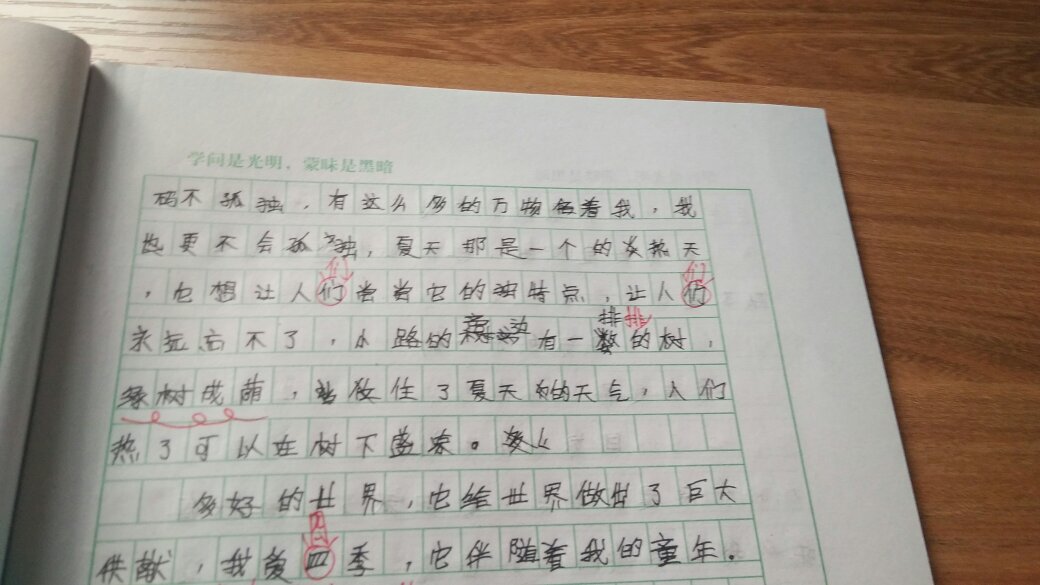 学问是光明,蒙昧是黑暗
码不孤独,有这么多的万物陪着我,我
也更不会孤独,夏天那是一个的炎热天
,它想让人们当当它的独特点,让人们
永远忘不了,小路的旁边有一排排的树,
绿树成荫,遮住了夏天的天气,人们
热了可以在树下盛凉。
多好的世界,它给世界做出了巨大
供献,我爱四季,它伴随着我的童年。